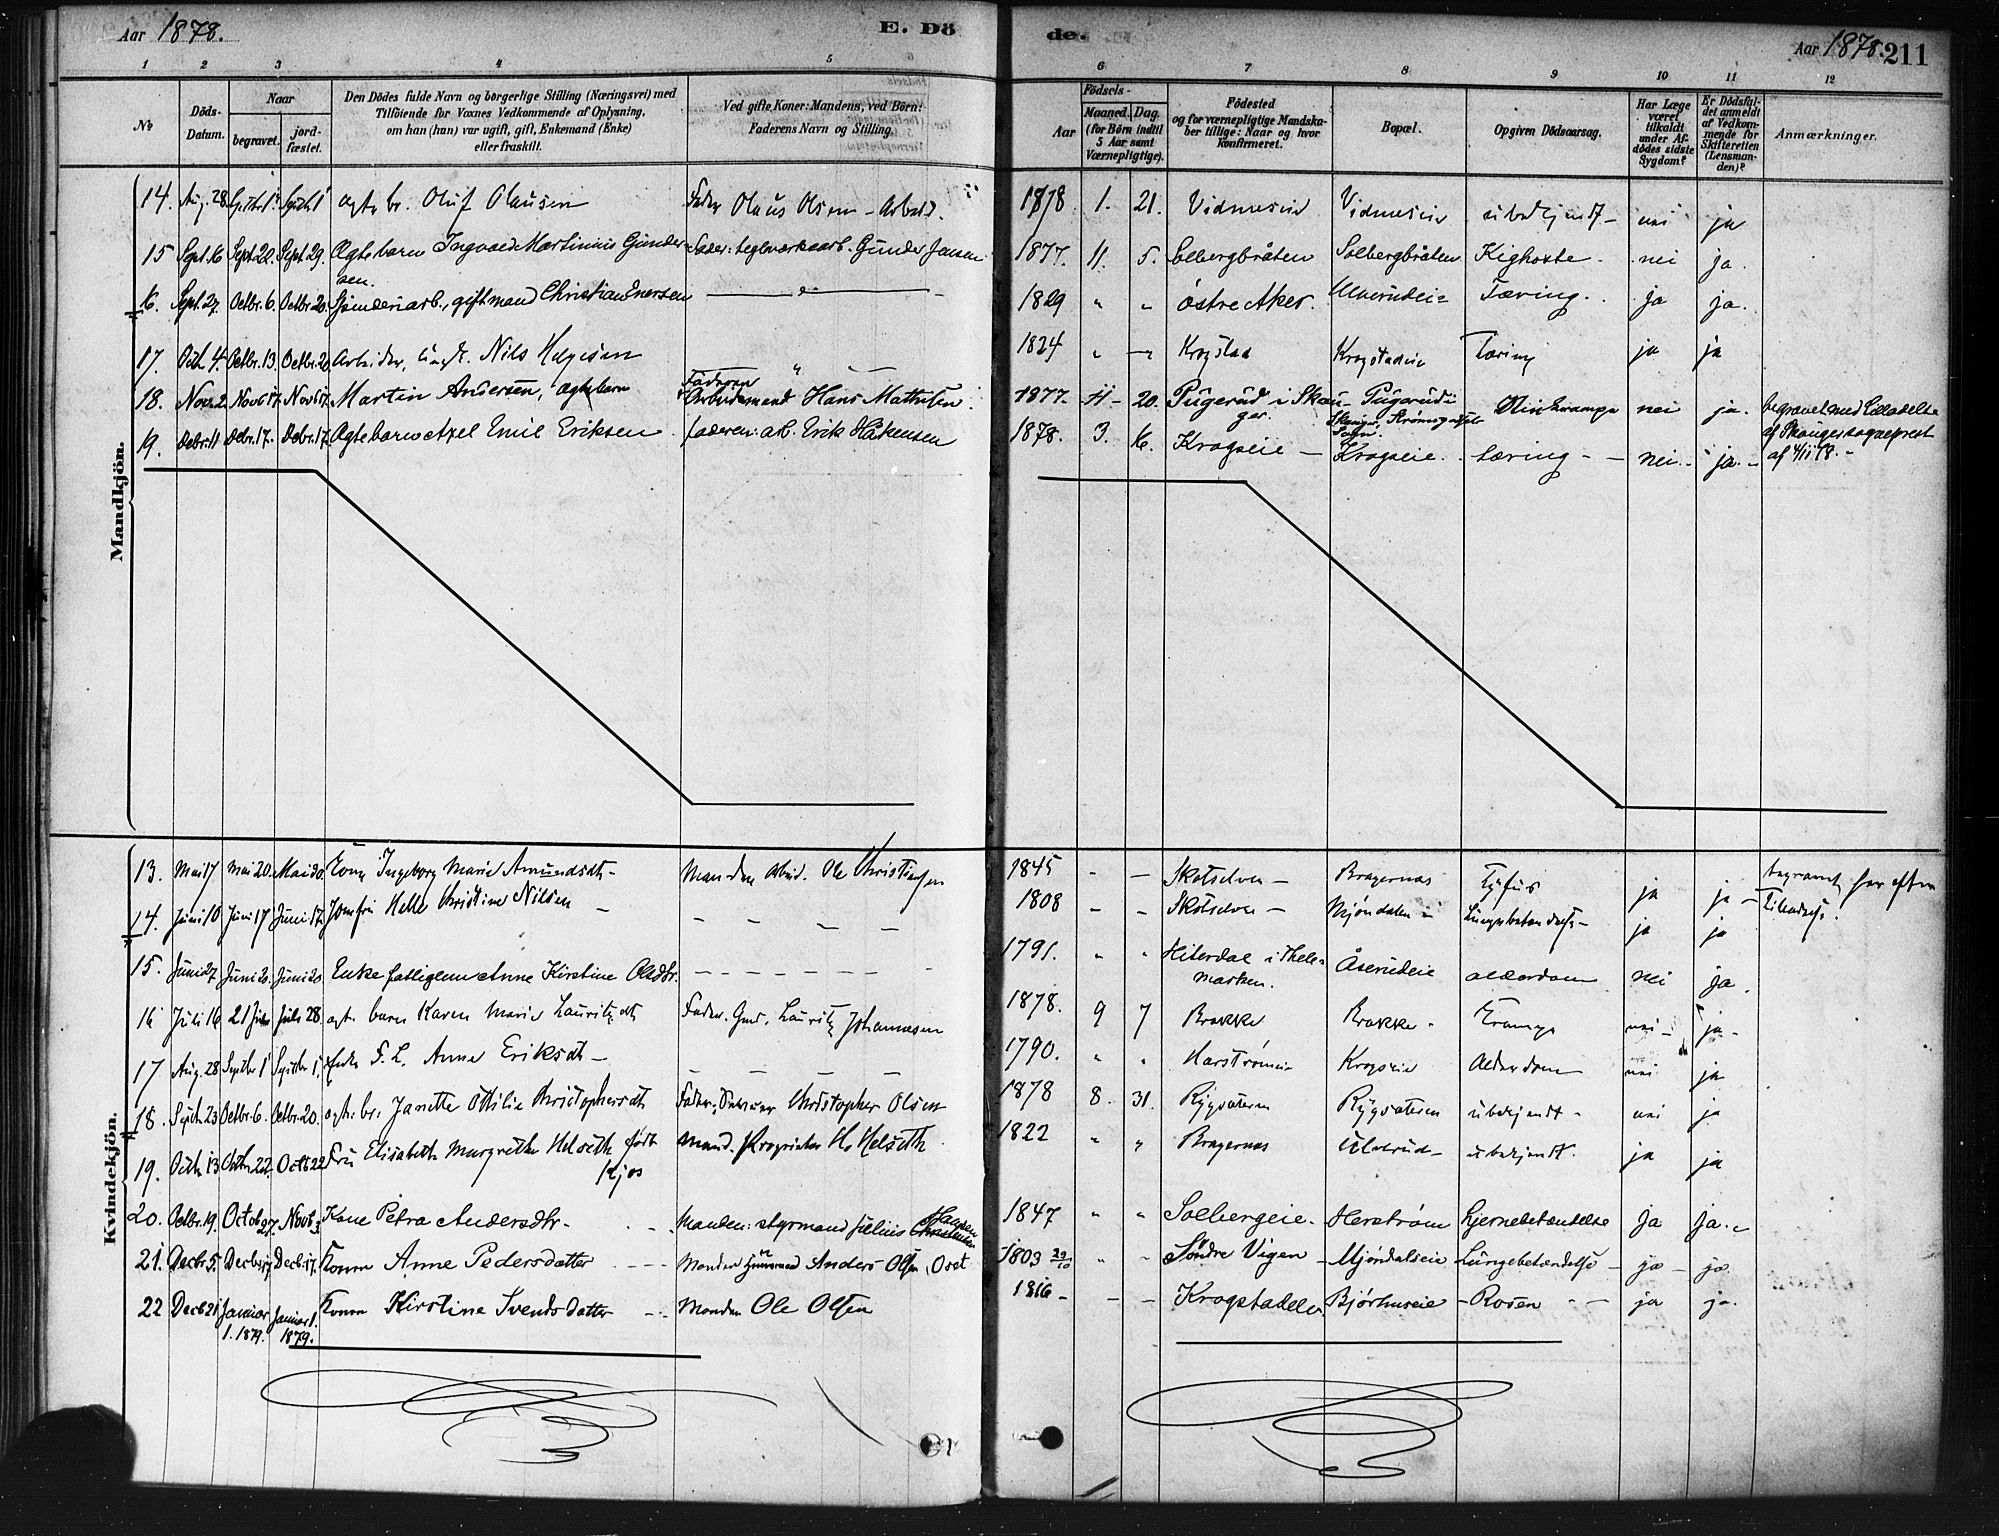 Aar 1878.
E. Dö
de.
Aar 1878. 211
1 2 3 4 5 6
6 7 8 9 10 11 12
No
Döds-Datum.
Naar
begravet.
jord-fæstet.
Den Dödes fulde Navn og borgerlige Stilling (Næringsvei) med
Tilföiende for Voxnes Vedkommende af Oplysning,
om han (hun) var ugift, gift, Enkemand (Enke)
eller fraskilt.
Ved gifte Koner: Mandens, ved Börn:
Faderens Navn og Stilling.
Födsels-
Aar
Maaned. Dag.
(for Börn indtil
5 Aar samt
Værnepligtige).
Födested
og for værnepligtige Mandska-
ber tillige: Naar og hvor
konfirmeret.
Bopæl.
Opgiven Dödsaarsag.
Har Læge
været
tilkaldt
under Af-
dödes sidste
Sygdom?
Er Dödsfal-
det anmeldt
af Vedkom-
mende for
Skifteretten
(Lensman-
den)?
Anmærkninger.
Mandkjön.
14. Aug. 28 Septbr 1 Septbr 1 ægte br. Oluf Olausen Fader Olaus Olsen - Arbeid. 1878 1. 21. Vidneseie Vidneseie ubekjendt - nei ja
15 Sept. 16 Sept 22. Sept. 29. Ægtebarn Ingvald Martinius Gunder- Fader: teglværksarb. Gunder Jansen 1877. 11. 5. Solbergbråten Solbergbråten Kighoste - nei ja.
sen.
16. Sept. 27. Octbr. 6. Octbr. 20. giftmand Christian Iversen 1829 " " östre Aker. Ulverudeie Tæring. ja ja.
17. Octb. 4. Octbr. 13 Octbr. 20 Arbeider, Nils Helgesen " 1824 " Krogstad Krogstadeie Tæring ja ja
18. Novr. 2 Novbr 17. Novbr 17. Martin Andersen, ægtebarn Faderen Arbeidsmand Hans Mathisen. 1877. 11 - 20. Pugerud i Skou- Pugerud i nei ja. begravet med Tilladelse
ger. Skouger, Strømsg
Sogn. af Skouger sogneprest
af 4/11 78. -
19. Debr. 11 Debr. 17. Debr. 17. Ægtebarn Axel Emil Eriksen. faderen: arb. Erik Håkensen 1878. 3. 16. Krogseie - Krogseie. tæring - nei - ja -
Kvindekjön.
13. Mai 17 Mai 20. Mai 20 Kone Ingeborg Marie Amundsdtr - Manden Arbeid. Ole Christensen 1845 - - Skotselven - Bragernes Tyfus ja ja - begravet her efter
Tilladelse.
14. Juni 10 Juni 17 Juni 17. Jomfru Helle Christine Nilsen - - - - - 1808 - - Skotselven - Mjøndalen - Lungebetændelse - ja ja
15. Juni 27 Juni 20. Juni 20 Enke fattiglem Anne Kirstine Olsdtr. - - - - 1791. " " Hiterdal i Thele- Åserudeie alderdom nei ja.
marken.
16 Juli 16 21 Juli Juli 28 ægte barn Karen Marie Lauritzdtr Fader. Gmd. Lauritz Johannesen 1878. 9 7 Brække Brække - Krampe nei - ja -
17 Aug. 28 Septbr 1 Septbr 1. Enke F. L. Anne Eriksdtr - - - - 1790. " " Harstrømeie Krogseie Alderdom nei ja
18. Septb. 23 Octbr. 6. Octbr. 20. ægte br. Janette Ottilie Christophersdtr Fader: Christopher Olsen 1878 8. 31. Rygsæteren Rygsæteren ubekjendt - nei ja
19. Octb. 13 Octb. 22. Octb 22 Fru Elisabeth Margrethe Helseth født Mand. Proprietær H. Helseth 1822 " " Bragernes Ulverud - ubekjendt. ja ja
Kjos
20. Octbr. 19. Octob. 27. Novb. 3 Kone Petra Andersdtr - Manden: styrmand Julius Hansen 1847 " " Solbergeie. Herstrøm hjernebetændelse ja ja. -
21. Decbr 5. Decbr 17 Decbr. 17. Konen Anne Pedersdatter - Manden Huusmand Anders Olsen, Oset 1803 29/10 " " Søndre Vigen - Mjöndalseie Lungebetændelse - ja - ja.
22 Decb 21 Januar 1. 1879. Januar 1. 1879. Konen Kirstine Svendsdatter - - Manden Ole Olsen 1816 - - - Krogstadelv. Bjørhuseie - Rosen - - ja ja.